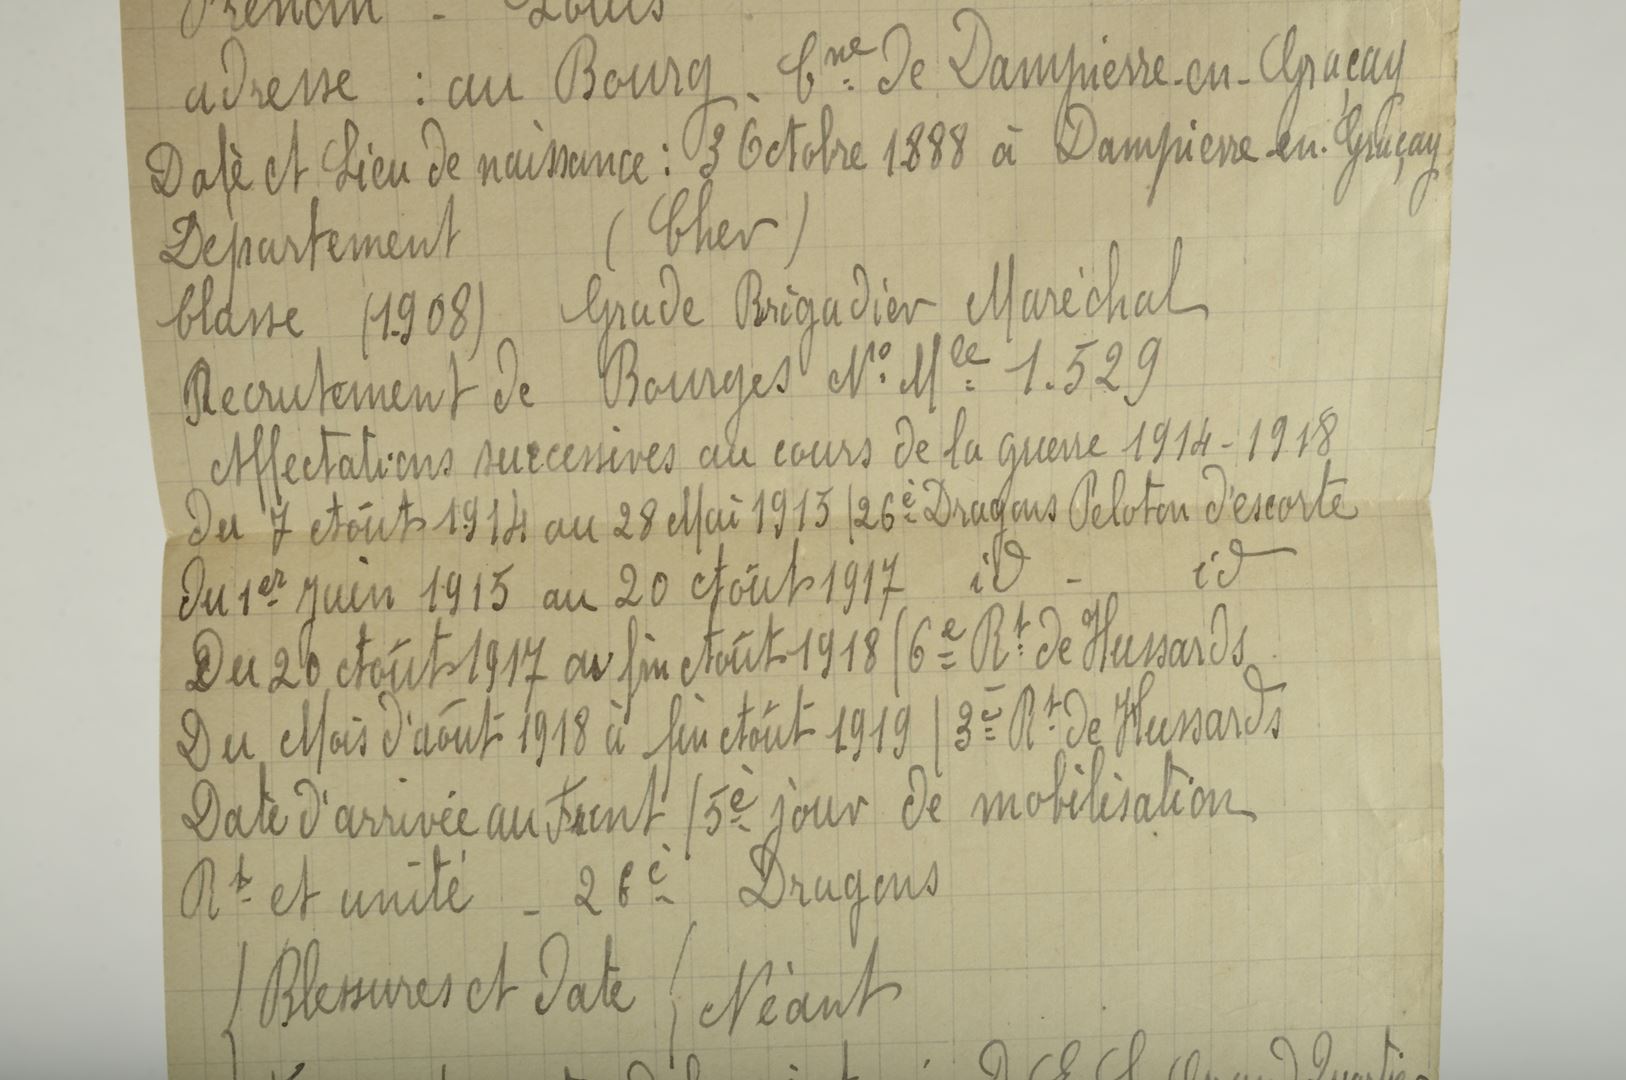 Prénom - Louis
adresse : au Bourg - Cne de Dampierre-en-Graçay
Date et Lieu de naissance : 3 Octobre 1888 à Dampierre-en-Graçay
Departement (Cher)
Classe (1908) Grade Brigadier Maréchal
Recrutement de Bourges No Mle 1.529
Affectations successives au cours de la guerre 1914-1918
Du 7 Aoüt 1914 au 28 Mai 1915 | 26e Dragons Peloton d'escorte
Du 1er Juin 1915 au 20 Aoüt 1917 id - id
Du 20 Aoüt 1917 au fin Aoüt 1918 | 6e Rt de Hussards
Du Mois d'aoüt 1918 à fin Aoüt 1919 | 3e Rt de Hussards
Date d'arrivée au Front | 5e jour de mobilisation
Rt et unité - 26e Dragons
Blessures et Date Néant